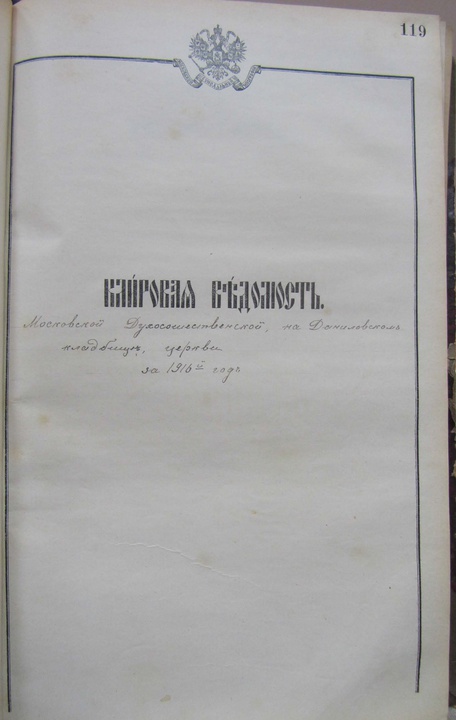 119
КЛИ́РОВАЯ ВѢДОМОСТЬ.
Московской Духосошественской, на Даниловскомъ
кладбищѣ, церкви
за 1916й годъ